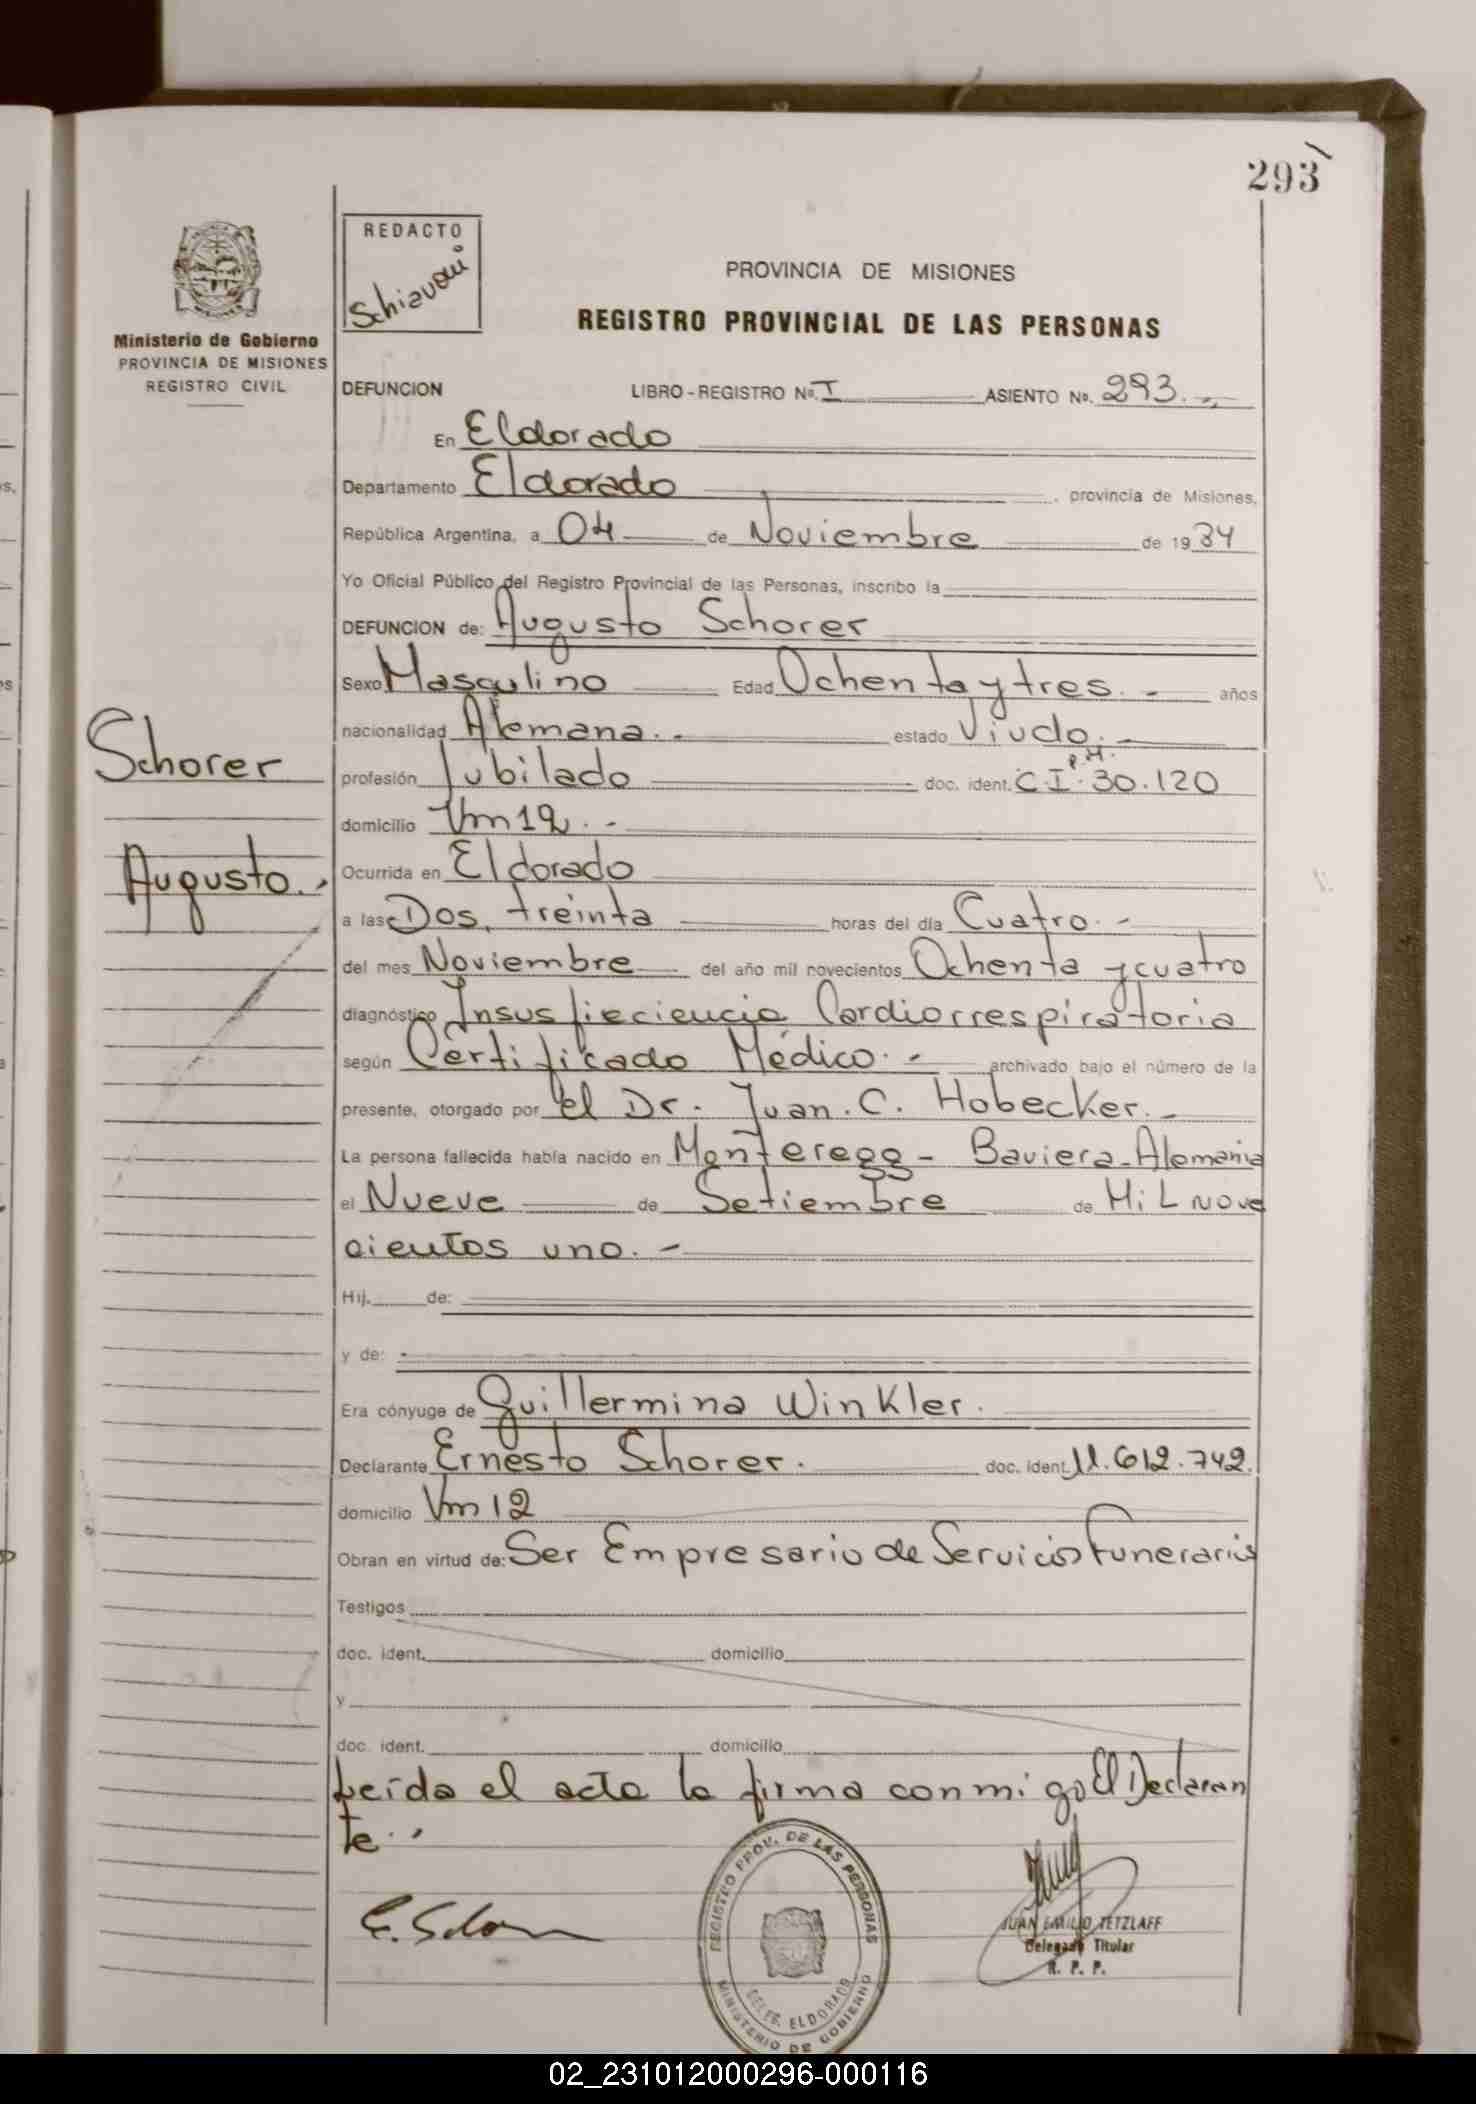 293
REDACTO
Schiavoni
PROVINCIA DE MISIONES
REGISTRO PROVINCIAL DE LAS PERSONAS
Ministerio de Gobierno
PROVINCIA DE MISIONES
REGISTRO CIVIL
DEFUNCION LIBRO-REGISTRO Nº. I ASIENTO Nº. 293.-
En Eldorado
Departamento Eldorado, provincia de Misiones,
República Argentina, a 04 de Noviembre de 1984
Yo Oficial Público del Registro Provincial de las Personas, inscribo la
DEFUNCION de: Augusto Schorer
Sexo Masculino Edad Ochenta y tres.- años
nacionalidad Alemana.- estado Viudo.-
Schorer
profesión Jubilado doc. ident. C.I. P.M. 30.120
domicilio Vm12.-
Augusto.-
Ocurrida en Eldorado
a las Dos, treinta horas del día Cuatro.-
del mes Noviembre del año mil novecientos Ochenta y cuatro
diagnóstico Insusfieciencia Cardiorrespiratoria
según Certificado Médico.- archivado bajo el número de la
presente, otorgado por el Dr. Juan.C. Hobecker.-
La persona fallecida había nacido en Monteregg - Baviera-Alemania
el Nueve de Setiembre de Mil nove
cientos uno.-
Hij. de:
y de:
Era cónyuge de Guillermina Winkler.
Declarante Ernesto Schorer. doc. ident. 11.612.742.
domicilio Vm12
Obran en virtud de: Ser Empresario de Servicios Funerarios
Testigos
doc. ident. domicilio
y
doc. ident. domicilio
Leída el acta la firma conmigo El Declaran
te.-
REGISTRO PROV. DE LAS PERSONAS
DELEG. ELDORADO
MINISTERIO DE GOBIERNO
JUAN EMILIO TETZLAFF
Delegado Titular
R. P. P.
02_231012000296-000116